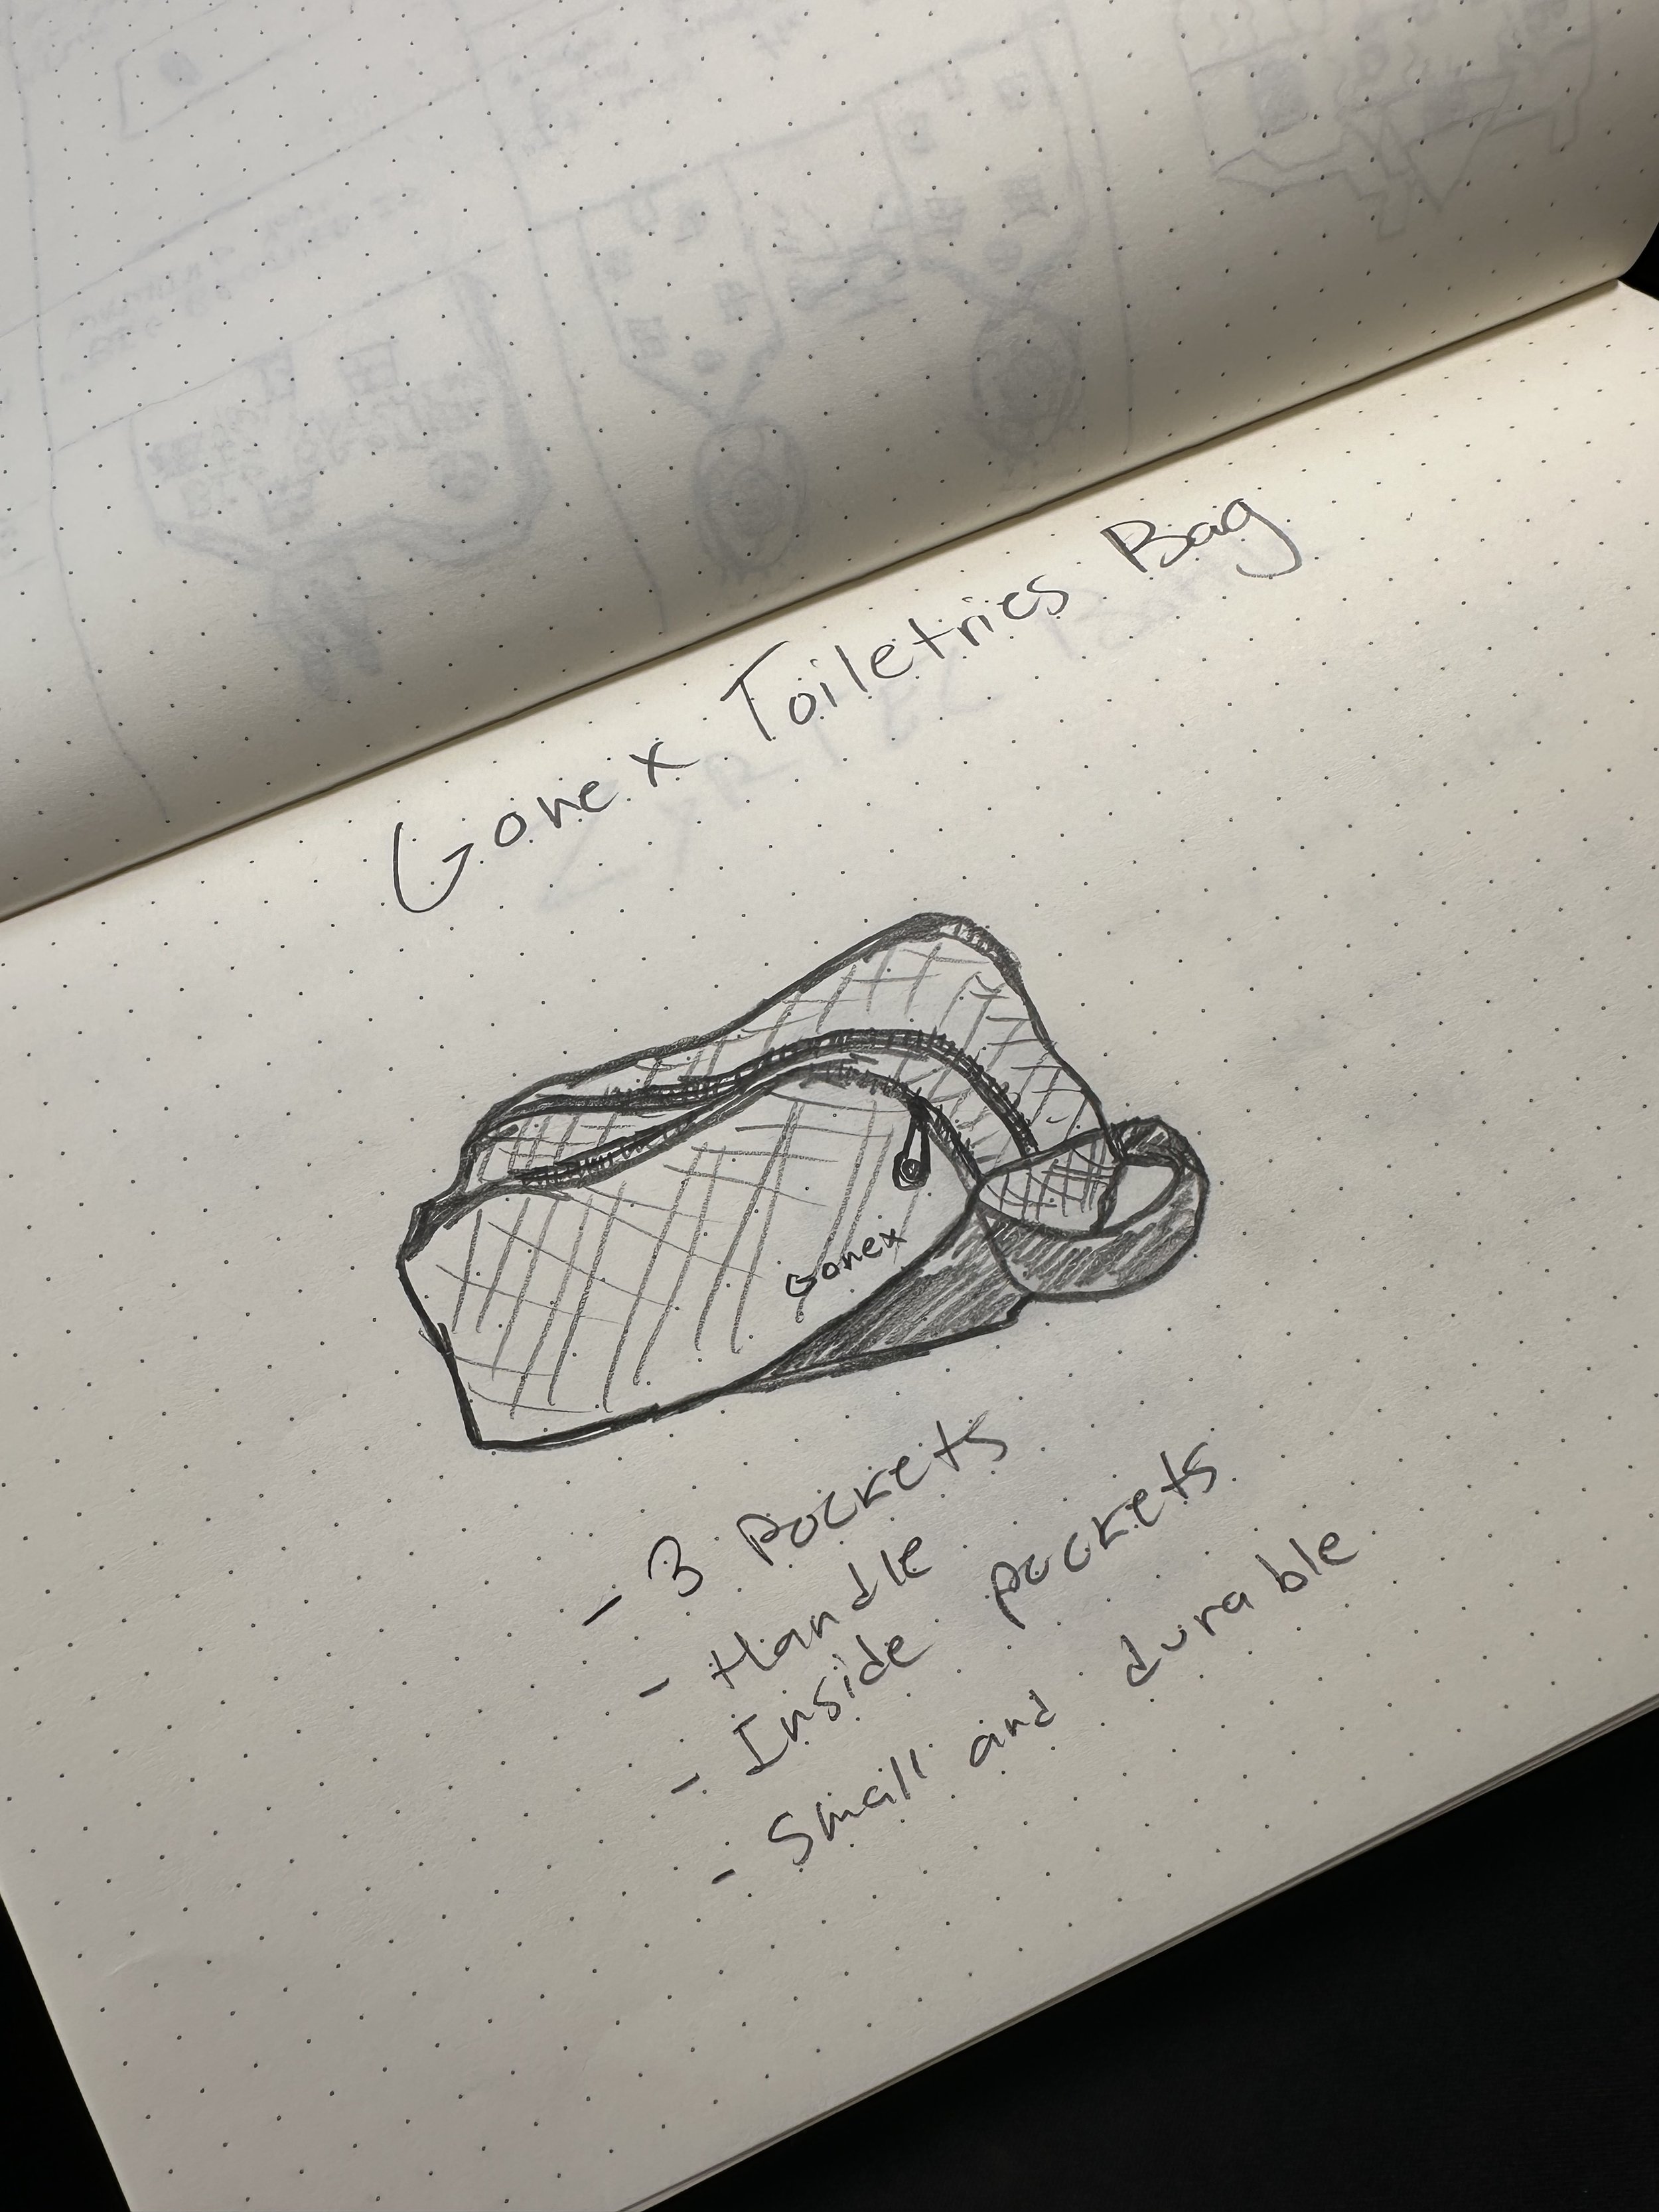 Gonex Toiletries Bag
Gonex
- 3 Pockets
- Handle
- Inside pockets
- Small and durable